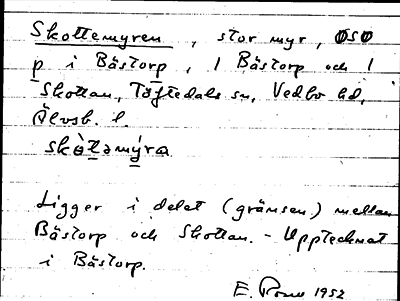 Skottemyren, stor myr, OSO
p i Bästorp, 1 Bästorp och 1
Skottan, Töftedals sn, Vedbo hd,
Älvsb. l.
skòtəmýra
Ligger i delet (gränsen) mellan
Bästorp och Skottan. - Upptecknat
i Bästorp.
E. 1952